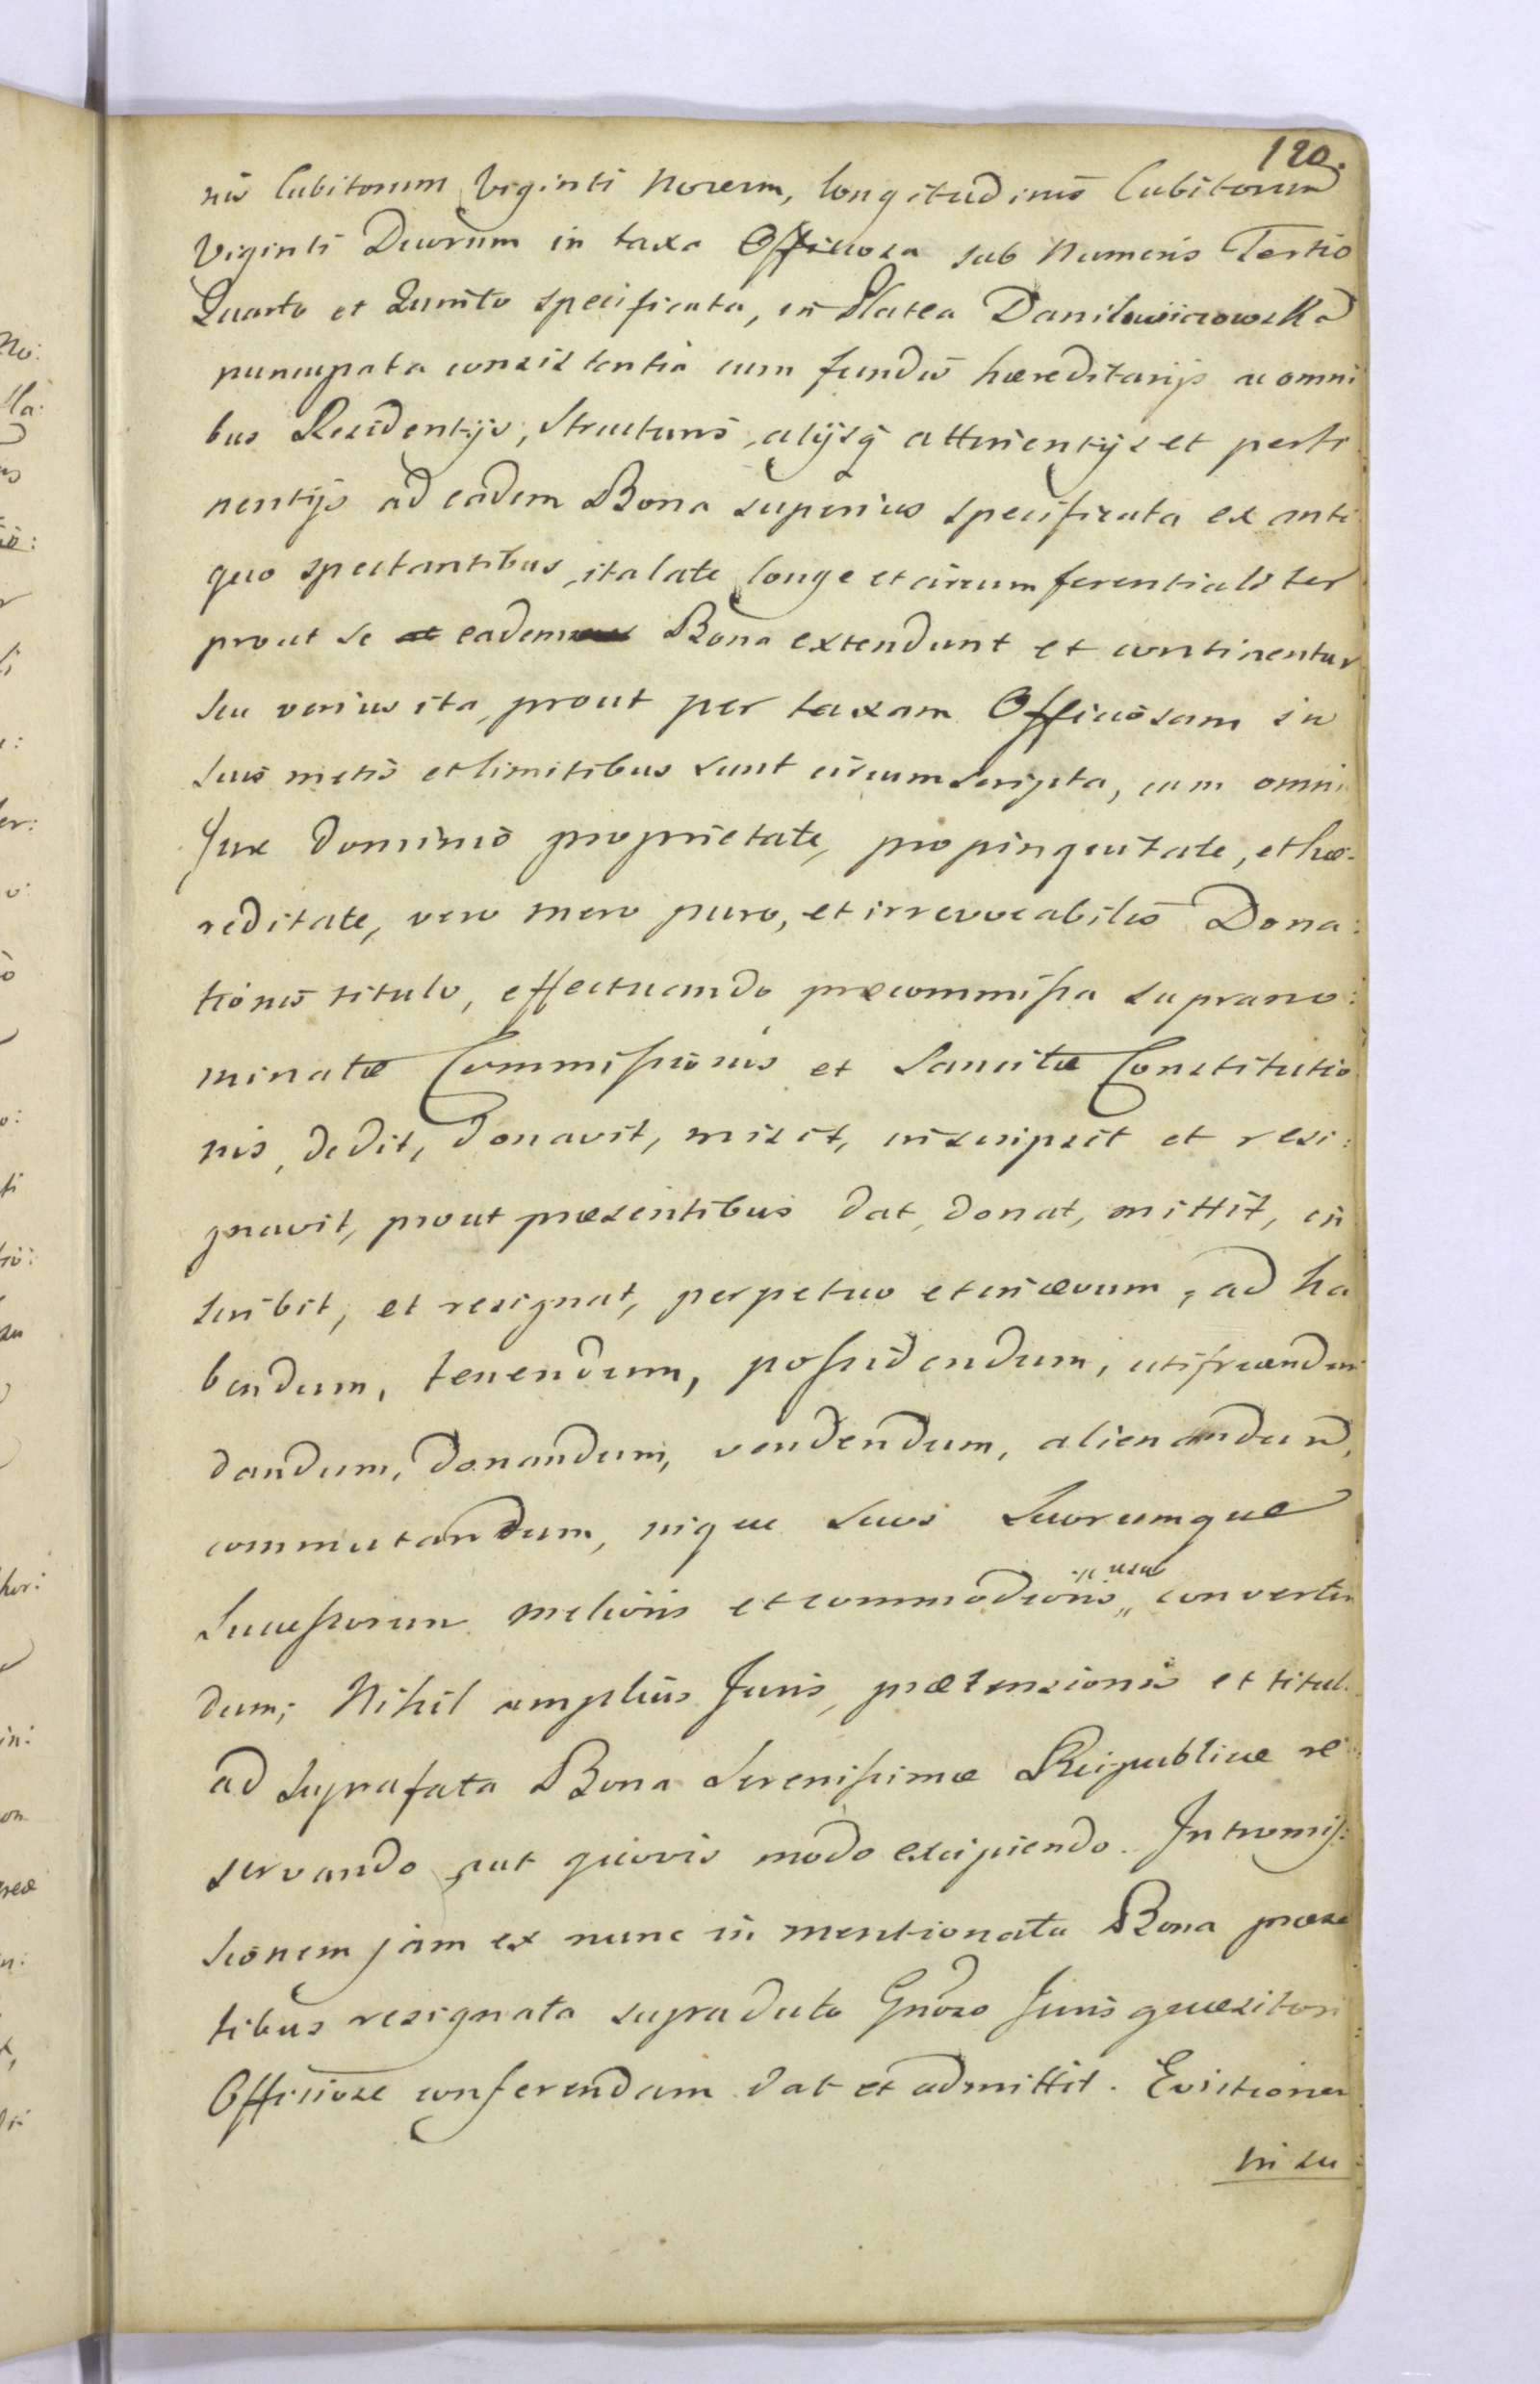 120.
nis Cubitorum Viginti Novem, longitudinis Cubitorum
Viginti Duorum in taxa Officiosa sub Numeris Tertio
Quarto et Quinto specificata, in Platea Danilowiczowska
nuncupata consistentia cum fundis hæreditarijs ac omni
bus Residentijs, Structuris, alijsq̃ attinentijs et perti
nentijs ad eadem Bona superius specificata ex anti
quo spectantibus, ita late longe et circumferentialiter
prout se eadem Bona extendunt et continentur
seu verius ita, prout per taxam Officiosam in
suis metis et limitibus sunt circumscripta, cum omni
Jure Dominio proprietate, propinquitate, et hæ-
reditate, vero mero puro, et irrevocabilis Dona:
tionis titulo, effectuando præcommissa suprano:
minatæ Commissionis et Sancitæ Constitutio
nis, dedit, donavit, misit, inscripsit et resi:
gnavit, prout præsentibus dat, donat, mittit, in
scribit, et resignat, perpetuo et in ævum, ad ha
bendum, tenendum, possidendum, utifruendum
dandum, donandum, vendendum, alienandum,
commutandum, inque suos Suorumque
Successorum melioris et commodioris " usus " converten
dum; Nihil amplius Juris, prætensionis et tituli
ad suprafata Bona Serenissimæ Reipublicæ re
servando aut quovis modo excipiendo. Intromis:
sionem jam ex nunc in mentionata Bona præsen
tibus resignata supradicto Gñoso Juris quæsitori
Officiose conferendam dat et admittit. Evictionem
in su